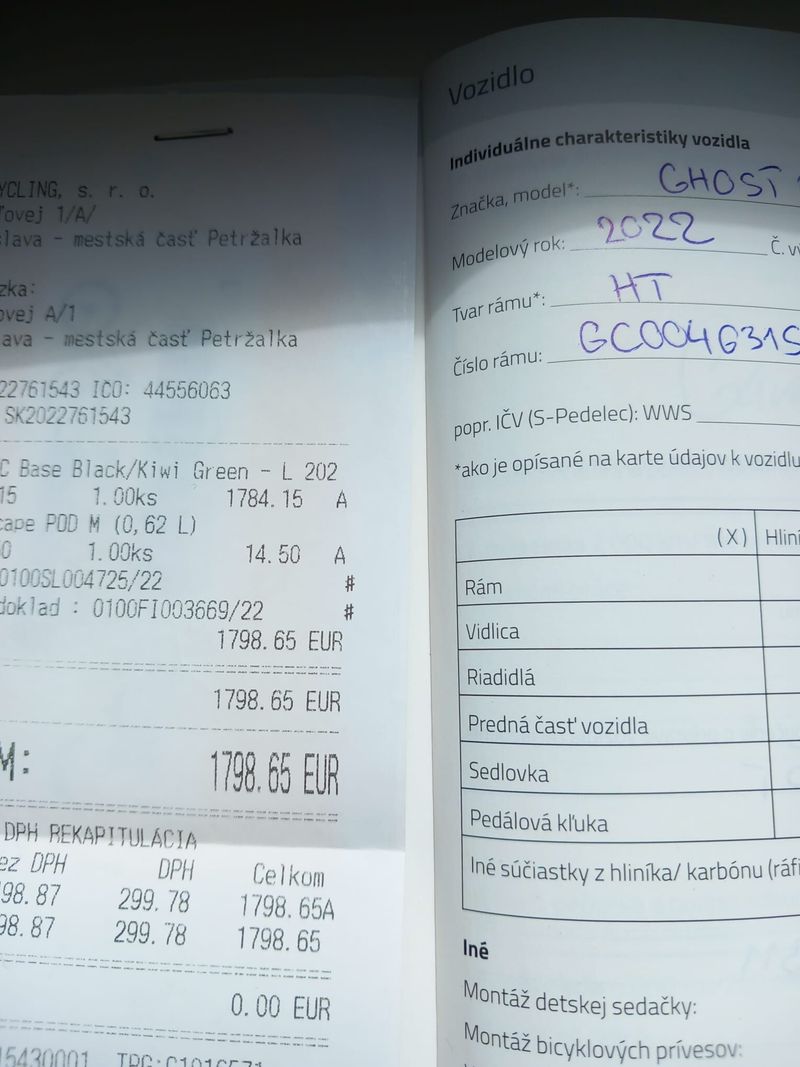 YCLING, s. r. o.
ľovej 1/A/
slava - mestská časť Petržalka
zka:
ovej A/1
ava - mestská časť Petržalka
22761543 IČO: 44556063
SK2022761543
C Base Black/Kiwi Green - L 202
15 1.00ks 1784.15 A
cape POD M (0,62 L)
0 1.00ks 14.50 A
0100SL004725/22 #
doklad : 0100FI003669/22 #
1798.65 EUR
1798.65 EUR
M: 1798.65 EUR
DPH REKAPITULÁCIA
ez DPH DPH Celkom
98.87 299.78 1798.65A
98.87 299.78 1798.65
0.00 EUR
Vozidlo
Individuálne charakteristiky vozidla
Značka, model*: GHOST
Modelový rok: 2022 Č. vý
Tvar rámu*: HT
Číslo rámu: GC004631S
popr. IČV (S-Pedelec): WWS
*ako je opísané na karte údajov k vozidlu
(X) Hliní
Rám
Vidlica
Riadidlá
Predná časť vozidla
Sedlovka
Pedálová kľuka
Iné súčiastky z hliníka/ karbónu (ráfi
Iné
Montáž detskej sedačky:
Montáž bicyklových prívesov: